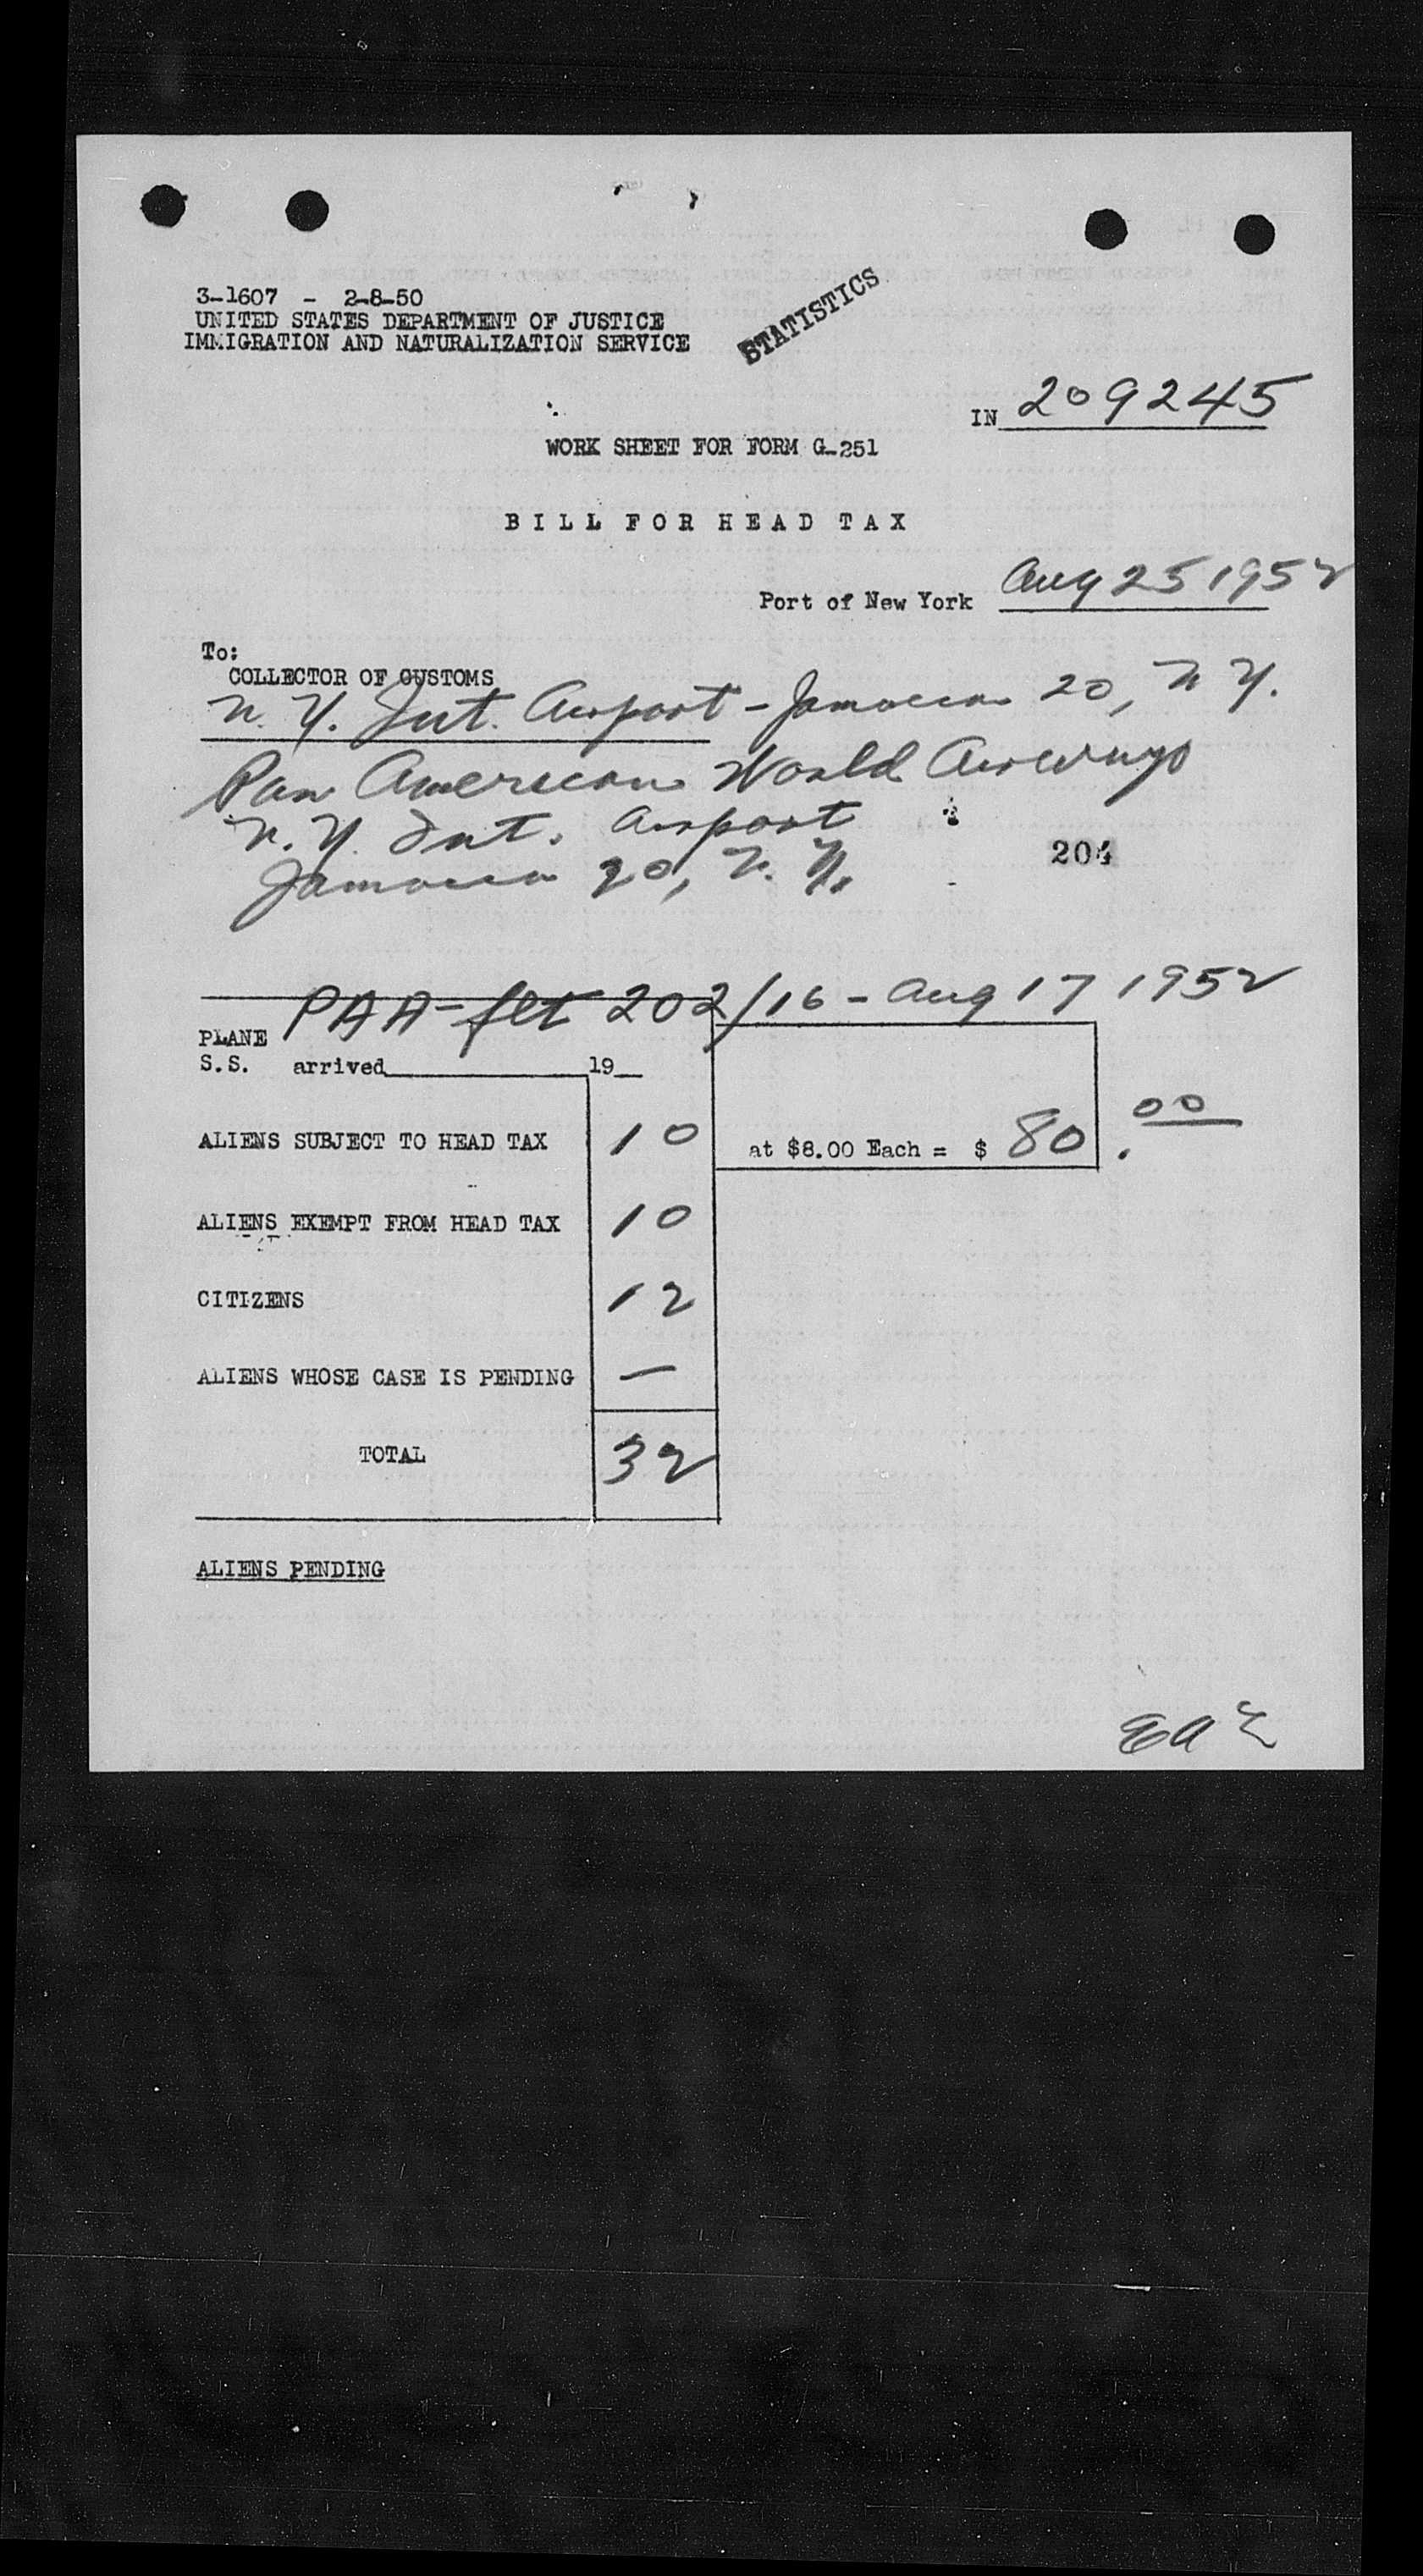 3-1607 - 2-8-50
UNITED STATES DEPARTMENT OF JUSTICE
IMMIGRATION AND NATURALIZATION SERVICE
STATISTICS
IN 209245
WORK SHEET FOR FORM G-251
BILL FOR HEAD TAX
Port of New York Aug 25 1952
To:
COLLECTOR OF CUSTOMS
N. Y. Int. Airport - Jamaica 20, N Y.
Pan American World Airways
N. Y. Int. Airport
Jamaica 20, N. Y.
204
PAA - flt 202/16 - Aug 17 1952
PLANE
S.S. arrived 19
ALIENS SUBJECT TO HEAD TAX 10 at $8.00 Each = $ 80.00
ALIENS EXEMPT FROM HEAD TAX 10
CITIZENS 12
ALIENS WHOSE CASE IS PENDING —
TOTAL 32
ALIENS PENDING